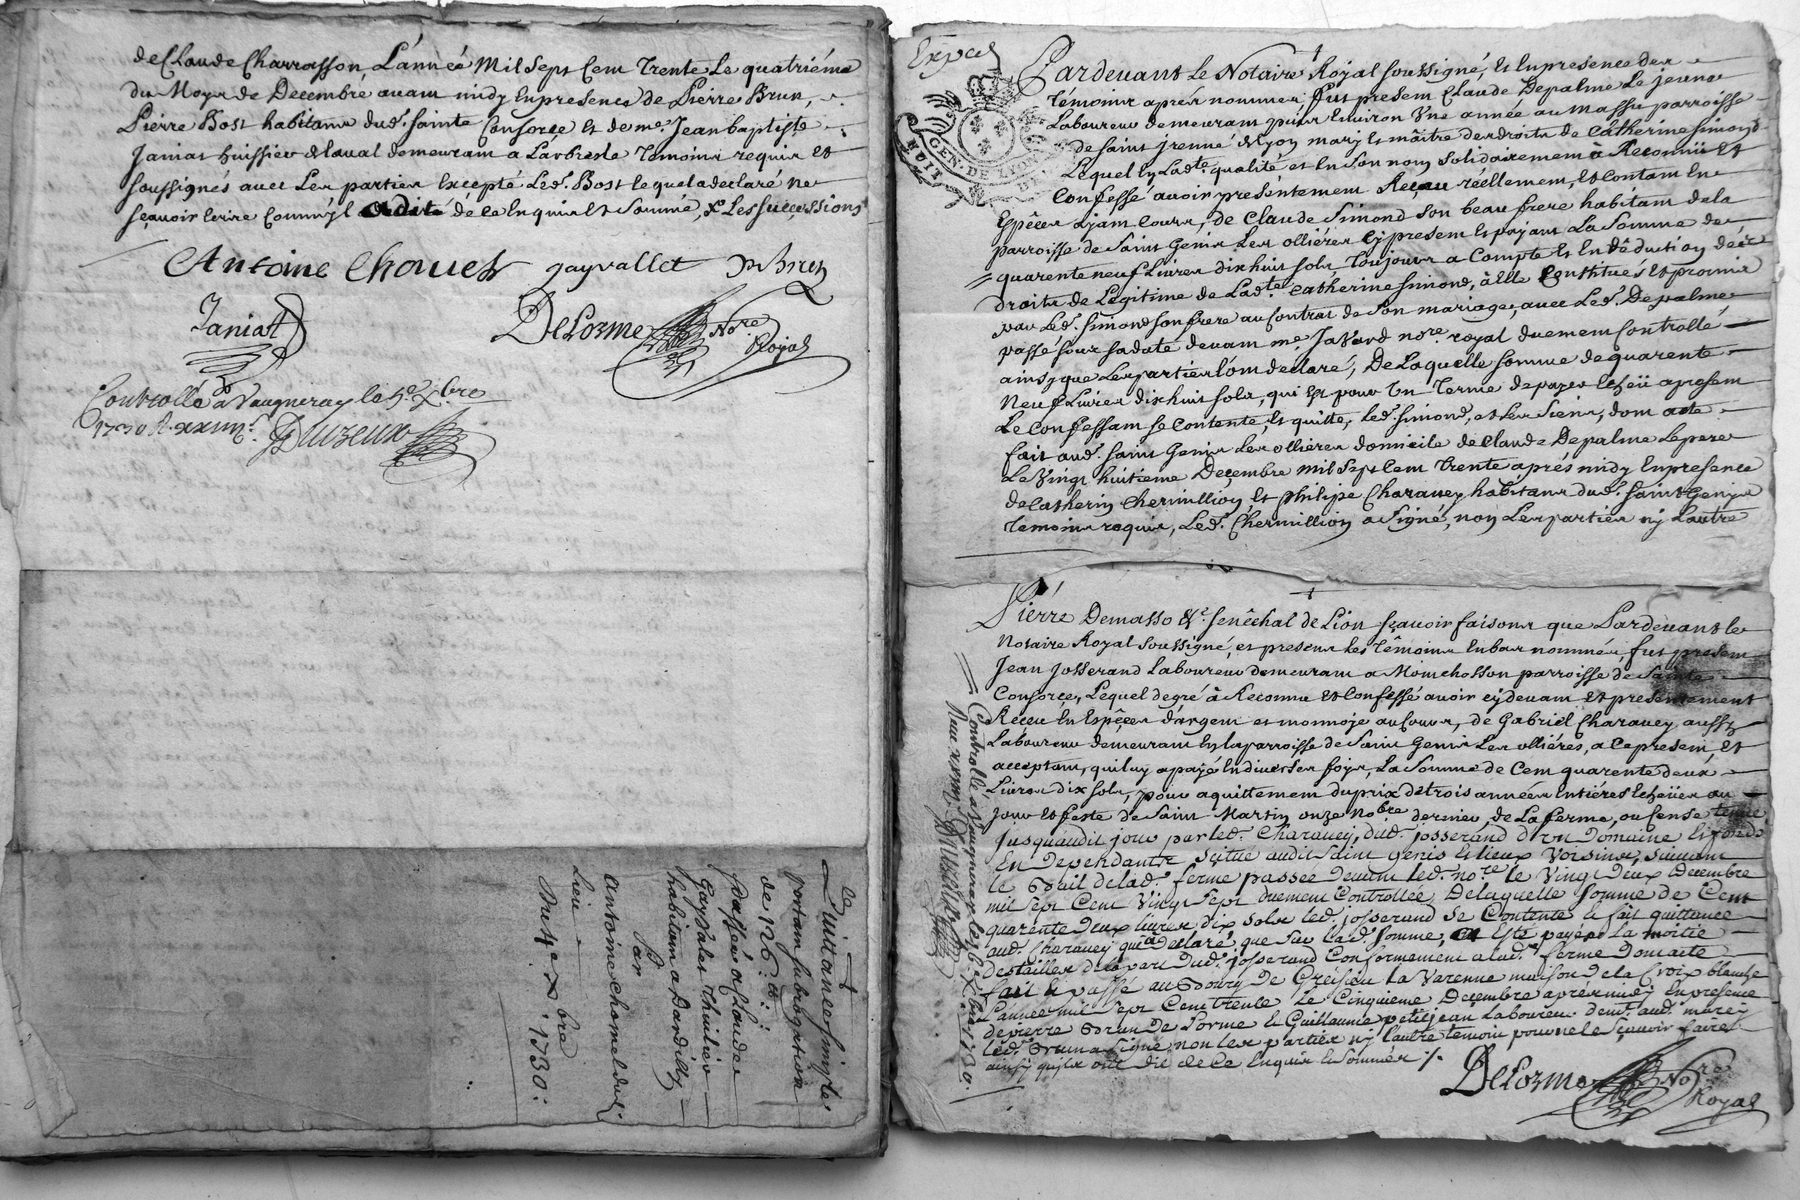 de Claude Charrasson, L'année Mil Sept Cent Trente Le quatriéme
du Moys de Decembre avant midy En presence de Pierre Brun,
Pierre Bost habitans dud. Sainte Consorce Et de me. Jean baptiste
Janiat huissier demeurant a Larbresle Temoins requis Et
soussignés avec Les parties Excepté Led. Bost lequel a declaré ne
sçavoir Ecrire Comm'il a dit de ce Enquis Et Sommé, X Les successions
Antoine Chomet gayvallet P Brun
Janiat Delorme Nore Royal
Controllé a Vaugneray le 5e Xbre
1730 R. xxiiijs.
Quittance simple
portant subrogation
de 176:
Passée a Claude
Gayvalet Thuilier
habitant a Dardilly
Par
Antoine chomel dud.
Lieu
Du 4e xbre 1730:
Exped
Pardevant Le Notaire Royal soussigné, Et En presence des
Témoins aprés nommés, fut present Claude Depalme Le jeune
Laboureur demeurant puis Environ Une année au Massu parroisse
de saint jrenné de Lyon mary Et maitre des droits de Catherine Simond
Lequel En Ladte. qualité et En son nom solidairement à Reconnü Et
Confessé avoir presentement Reçeu réellement, Et Contant En
Espêces ayant cours, de Claude Simond son beau frere habitant de la
parroisse de Saint Genis Les ollières Cy present Et payant La Somme de
quarente neuf Livres dix huit sols, Toujours a Compte Et En Dêduction des
droits de Legitime de Ladte. Catherine Simond, à Elle Constitués Et promis
par Led. Simond son frere au Contrat de son mariage, avec Led. Depalme
passé sous sa date devant me. Javard nore. royal duement Controllé
ainsy que Les parties L'ont declaré, De Laquelle somme de quarente
Neuf Livres dix huit sols, qui Est pour Un Terme de payes Echeü a present
Le Confessant se Contente, Et quitte, Led. Simond, et Les Siens, dont acte
fait aud. Saint Genis Les ollières domicile de Claude Depalme Le pere
Le Vingt huitieme Decembre mil Sept Cent Trente aprés midy En presence
de Catherin Chermillion Et philipe Charavey habitans dud. Saint Genis
Temoins requis, Led. Chermillion a signé, non Les parties ny L'autre
Pierre Demasso &c. senêchal de Lion sçavoir faisons que Pardevant le
Notaire Royal Soussigné, et presens les Têmoins En bas nommés, fut present
Jean Josserand Laboureur demeurant a Montchosson parroisse de Sainte
Consorce, Lequel de gré à Reconnu Et Confessé avoir cy devant Et presentement
Réçeu En Espêces d'argent et monnoje au Cours, de Gabriel Charavey aussy
Laboureur demeurant En la parroisse de Saint Genis Les olliéres, a Ce present, Et
acceptant, qui luy a payé En diverses foys, La Somme de Cent quarente deux
Livres dix sols, pour aquittement du prix de trois années Entiéres Echeües au
jour Et feste de Saint Martin onze Nobre dernier, de La ferme, ou sense tenue
Jusquaudit jour par led. Charavey, dud. josserand d'un Domaine Et fonds
En Dependants, scitué audit Saint Genis Et lieux Voisins, suivant
le Bail de lad. ferme passée devant led. nore le Vingt deux Decembre
mil sept Cent Vingt sept duement Controllée, De laquelle somme de Cent
quarente deux livres dix sols led. josserand se Contente Et fait quittance
aud. Charavey qui a declaré que sur lad. somme, Est payée La moitié
des tailles de la part dud. josserand Conformement a lad. ferme dont acte
fait Et passé au Bourg de Grésieu la Varenne maison de la Croix blanche
L'année mil sept Cent trente Le Cinquieme Decembre aprés midy En presence
de pierre Brun de Lorme Et Guillaume petitjean Laboureur demt. aud.
led. Brun a signé, non les parties ny l'autre temoin pour ne le sçavoir faire
ainsy qu'ils ont dit de Ce Enquis Et Sommés ./.
Delorme Nore Royal
Controllé a Vaugneray le 6e Xbre 1730.